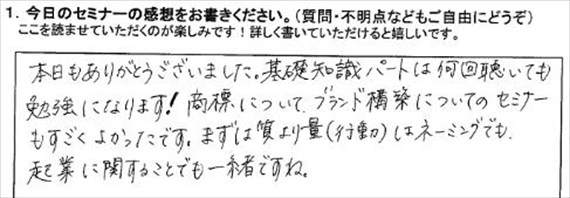 1. 今日のセミナーの感想をお書きください。(質問・不明点などもご自由にどうぞ)
ここを読ませていただくのが楽しみです！詳しく書いていただけると嬉しいです。
本日もありがとうございました。基礎知識パートは何回聴いても
勉強になります！商標について、ブランド構築についてのセミナー
もすごくよかったです。まずは質より量(行動)はネーミングでも、
起業に関することでも一緒ですね。